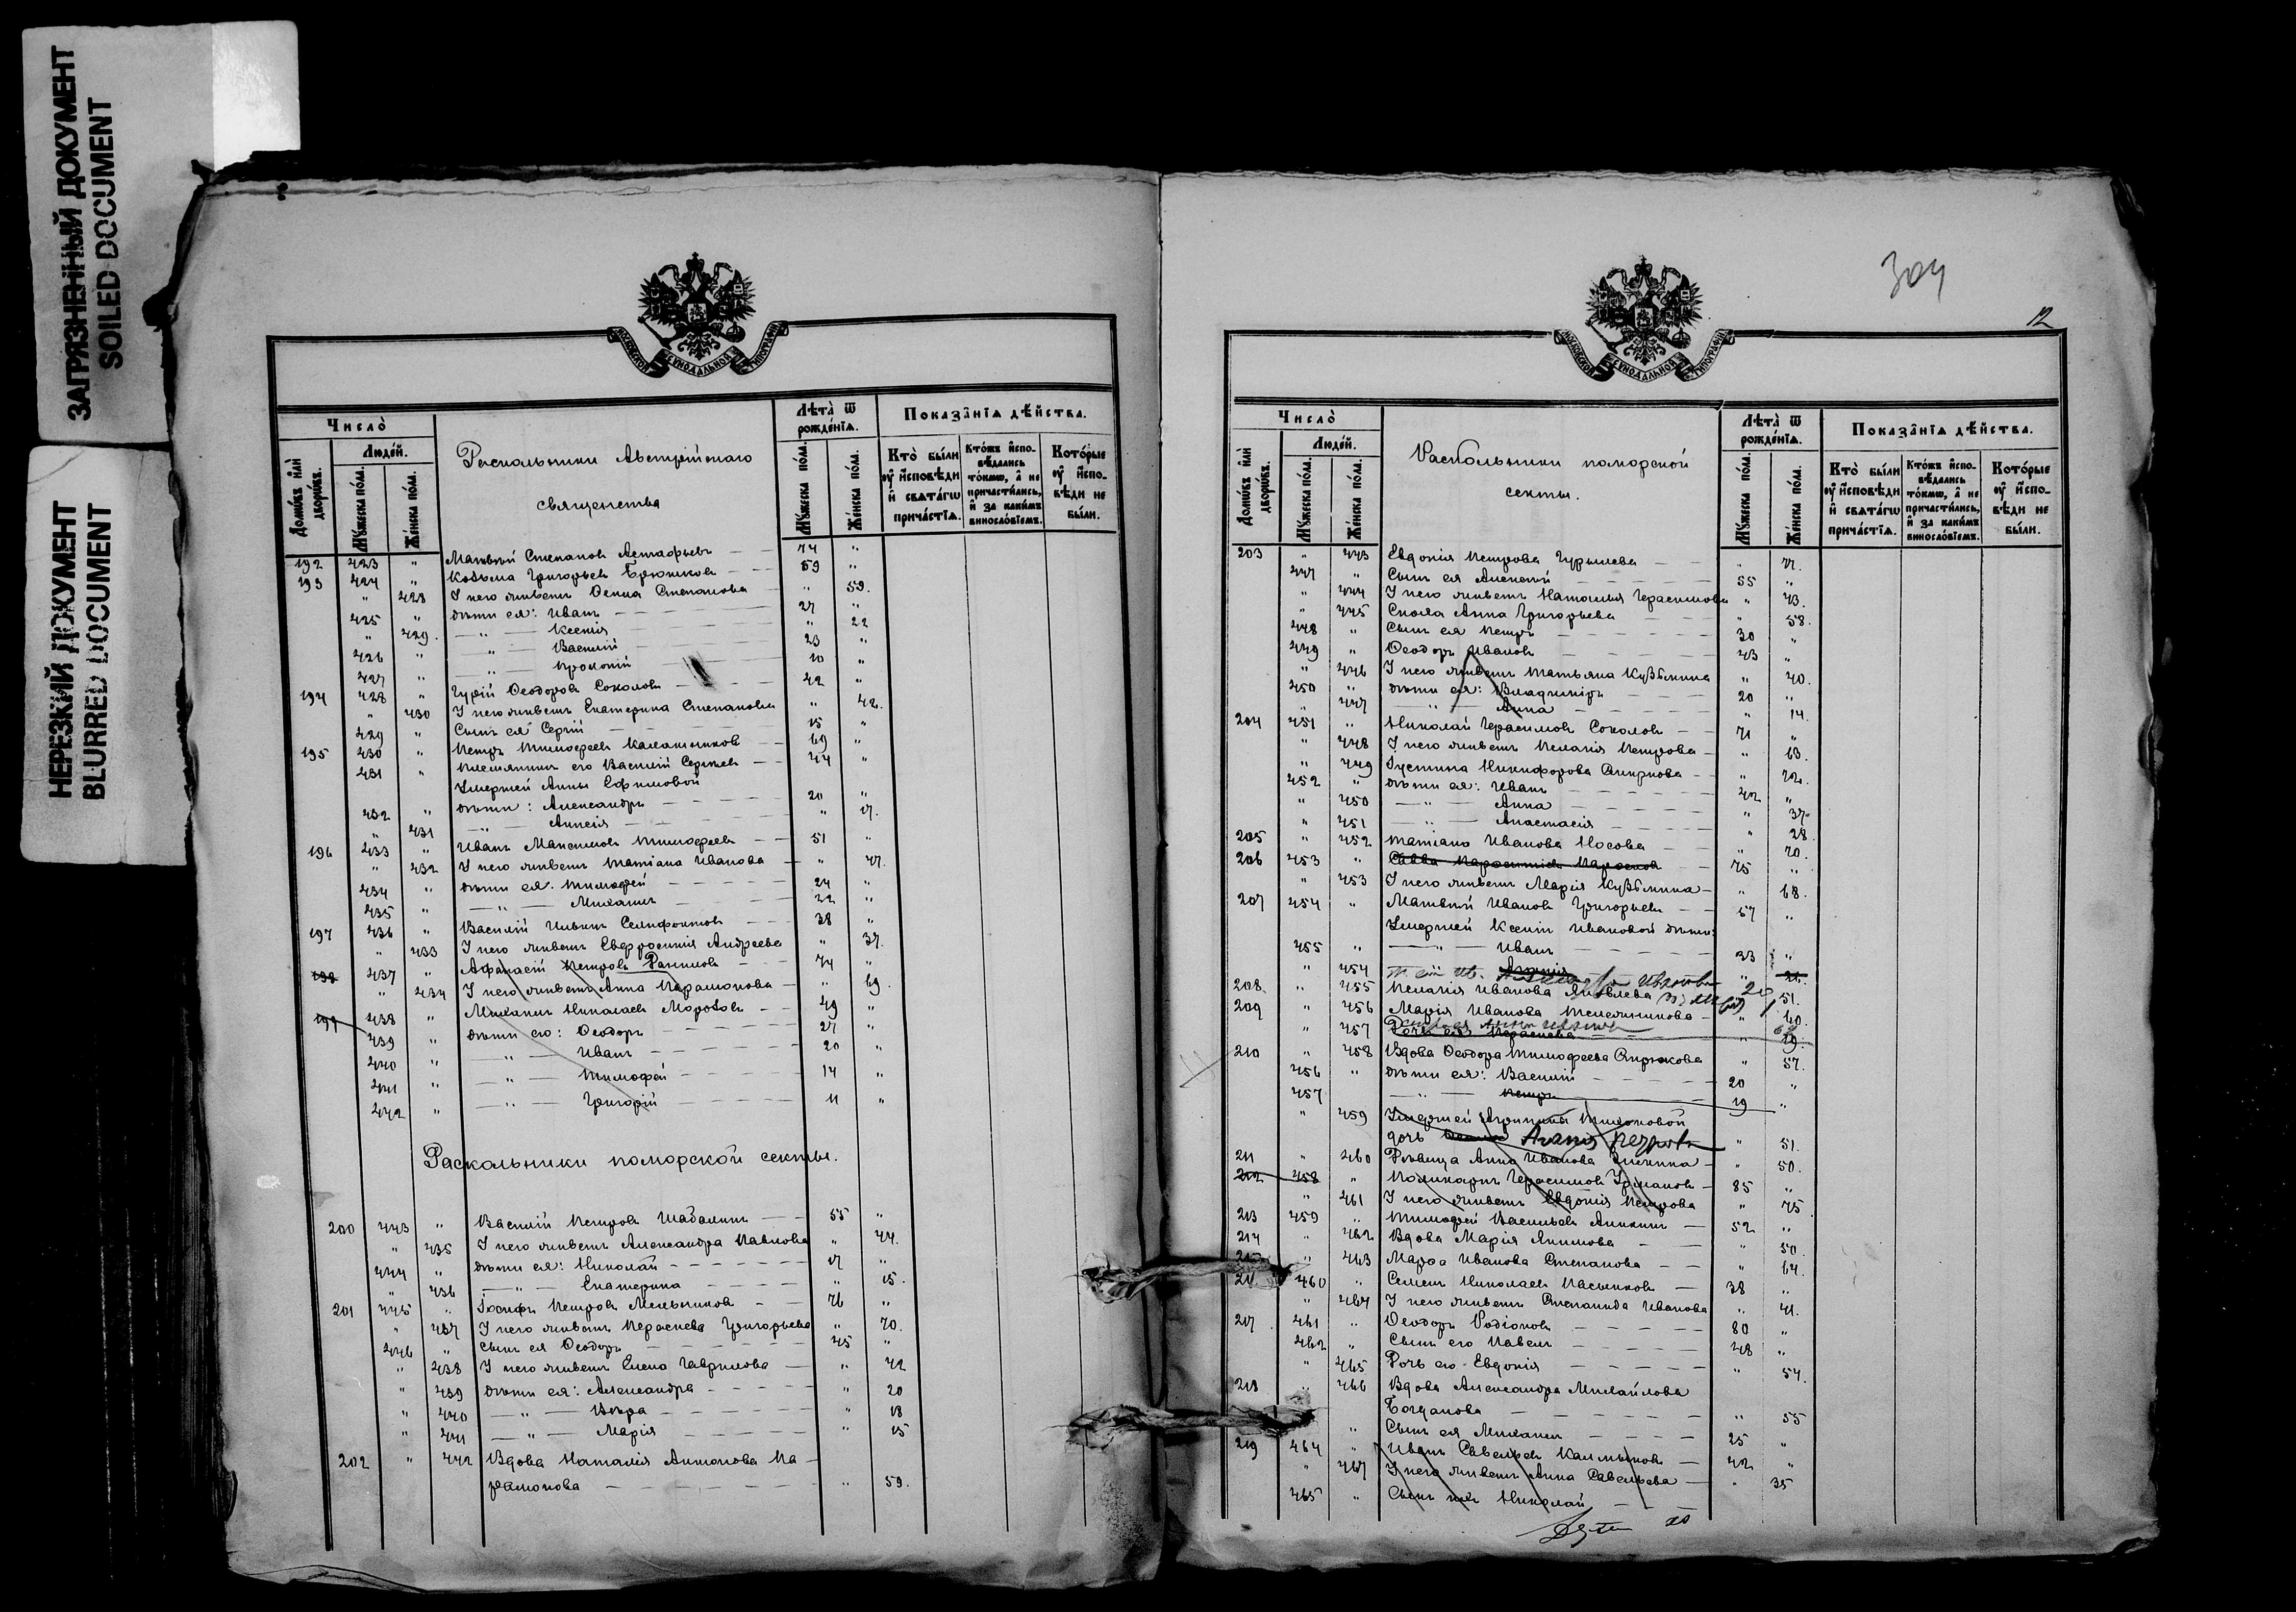 ЗАГРЯЗНЕННЫЙ ДОКУМЕНТ
SOILED DOCUMENT
НЕРЕЗКИЙ ДОКУМЕНТ
BLURRED DOCUMENT
МОСКОВСКОЙ СѴНОДАЛЬНОЙ ТИПОГРАФІИ
Число̀
Домѡ́въ и҆лѝ дворѡ́въ.
Люде́й.
Мꙋ́жеска по́ла.
Же́нска по́ла.
Раскольники Австрійскаго
священства
Лѣта̀ ѿ рожде́нїѧ.
Мꙋ́жеска по́ла.
Же́нска по́ла.
Показа̑нїѧ дѣ́йства.
Кто̀ бы́ли оу҆ и҆сповѣди и҆ свѧта́гѡ прича́стїѧ.
Кто́жъ и҆спо-вѣдались то́кмѡ, а҆ не причасти́лись, и҆ за каки́мъ винослов́їемъ.
Кото́рые оу҆ и҆спо-вѣди не бы́ли.
192 423 " Матвѣй Степановъ Астафьевъ — 74 "
193 424 " Козьма Григорьевъ Брюшковъ — 59 "
" 428 У него живетъ Степанова — " 59.
425 " дѣти ея: Иванъ — 27 "
" 429. — " — Ксенія — " 22
426 " — " — Василій — 23 "
427 " — " — Прокопій — 10 "
194 428 " Гурій Ѳеодоровъ Соколовъ — 42 "
" 430 У него живетъ Екатерина Степанова " 42.
429 " Сынъ ея Сергій — 15 "
195 430 " Петръ Тимоѳеевъ Калашниковъ — 69 "
431 " Племянникъ его Василій Сергѣевъ — 44 "
Умершей Анны Ефимовой
432 " дѣти: Александръ — 20 "
" 431 — " — Алексія — " 17.
196 433 " Иванъ Максимовъ Тимоѳеевъ — 51 "
" 432 У него живетъ Татіана Иванова — " 47.
434 " дѣти ея: Тимоѳей — 24 "
435 " — " — Михаилъ — 22 "
197 436 " Василій Ильинъ — 38 "
" 433 У него живетъ Евфросинія Андреева " 37.
198 437 " Аѳанасій Петровъ — 74 "
" 434 У него живетъ Анна Парамонова — " 69
199 438 " Михаилъ Николаевъ Морозовъ — 49 "
439 " дѣти его: Ѳеодоръ — 27 "
440 " — " — Иванъ — 20 "
441 " — " — Тимоѳей — 14 "
442 " — " — Григорій — 11 "
Раскольники поморской секты.
200 443 " Василій Петровъ Шабалинъ — 55 "
" 435 У него живетъ Александра Павлова " 44.
444 " дѣти ея: Николай — 17 "
" 436 — " — Екатерина — " 15.
201 445 " Іосифъ Петровъ Мельниковъ — 76 "
" 437 У него живетъ Параскева Григорьева " 70.
446 " Сынъ ея Ѳеодоръ — 45 "
" 438 У него живетъ Елена Гаврилова — " 42
" 439 дѣти ея: Александра — " 20
" 440 — " — Вѣра — " 18
" 441 — " — Марія — " 15
202 " 442 Вдова Наталія Антонова Па-
рамонова — " 59.
304
12
МОСКОВСКОЙ СѴНОДАЛЬНОЙ ТИПОГРАФІИ
Число̀
Домѡ́въ и҆лѝ дворѡ́въ.
Люде́й.
Мꙋ́жеска по́ла.
Же́нска по́ла.
Раскольники поморской
секты.
Лѣта̀ ѿ рожде́нїѧ.
Мꙋ́жеска по́ла.
Же́нска по́ла.
Показа̑нїѧ дѣ́йства.
Кто̀ бы́ли оу҆ и҆сповѣди и҆ свѧта́гѡ прича́стїѧ.
Кто́жъ и҆спо-вѣдались то́кмѡ, а҆ не причасти́лись, и҆ за каки́мъ винослов́їемъ.
Кото́рые оу҆ и҆спо-вѣди не бы́ли.
203 " 443 Евдокія Петрова — " 77.
447 " Сынъ ея Алексѣй — 55 "
" 444 У него живетъ Наталія Герасимова " 43.
" 445 Сноха Анна Григорьева — " 58.
448 " Сынъ ея Петръ — 30 "
449 " Ѳеодоръ Ивановъ — 43 "
" 446 У него живетъ Татьяна Кузьмина " 40.
450 " дѣти ея: Владиміръ — 20 "
" 447 — " — Анна — " 14.
204 451 " Николай Герасимовъ Соколовъ — 71 "
" 448 У него живетъ Пелагія Петрова — " 63.
" 449 Іустина Никифорова Смирнова — " 72.
452 " дѣти ея: Иванъ — 42 "
" 450 — " — Анна — " 37.
" 451 — " — Анастасія — " 28.
205 " 452 Татіана Иванова Носова — " 70.
206 453 " Савва — 75 "
" 453 У него живетъ Марія Кузьмина — " 68.
207 454 " Матвѣй Ивановъ Григорьевъ — 57 "
Умершей Ксеніи Ивановой дѣти:
455 " — " — Иванъ — 33 "
" 454
208. " 455 Пелагія Иванова Яковлева " 51.
209 " 456 Марія Иванова — " 60.
" 457 Дочь ея Параскева " 19.
210 " 458 Вдова Ѳеодора Тимоѳеева Бирюкова " 57.
456 " дѣти ея: Василій — 20 "
457 " — " — Петръ — 19 "
" 459 Умершей
дочь " 51.
211 " 460 Дѣвица Анна Иванова — " 50.
212 458 " Поликарпъ Герасимовъ — 85 "
" 461 У него живетъ Евдокія Петрова " 75
213 459 " Тимоѳей Васильевъ Аникинъ — 52 "
214 " 462 Вдова Марія Акимова — " 50.
215 " 463 Марѳа Иванова Степанова — " 64.
216 460 " Семенъ Николаевъ — 38 "
" 464 У него живетъ Степанида Иванова " 41.
217 461 " Ѳеодоръ Родіоновъ — 80 "
462 " Сынъ его Павелъ — 48 "
" 465 Дочь его Евдокія — " 54.
218 " 466 Вдова Александра Михайлова
Богданова — " 55
" Сынъ ея Михаилъ — 25 "
219 464 " Иванъ Савельевъ Калмыковъ — 42 "
" 467 У него живетъ Анна Савельева — " 35
465 " Сынъ ихъ Николай —